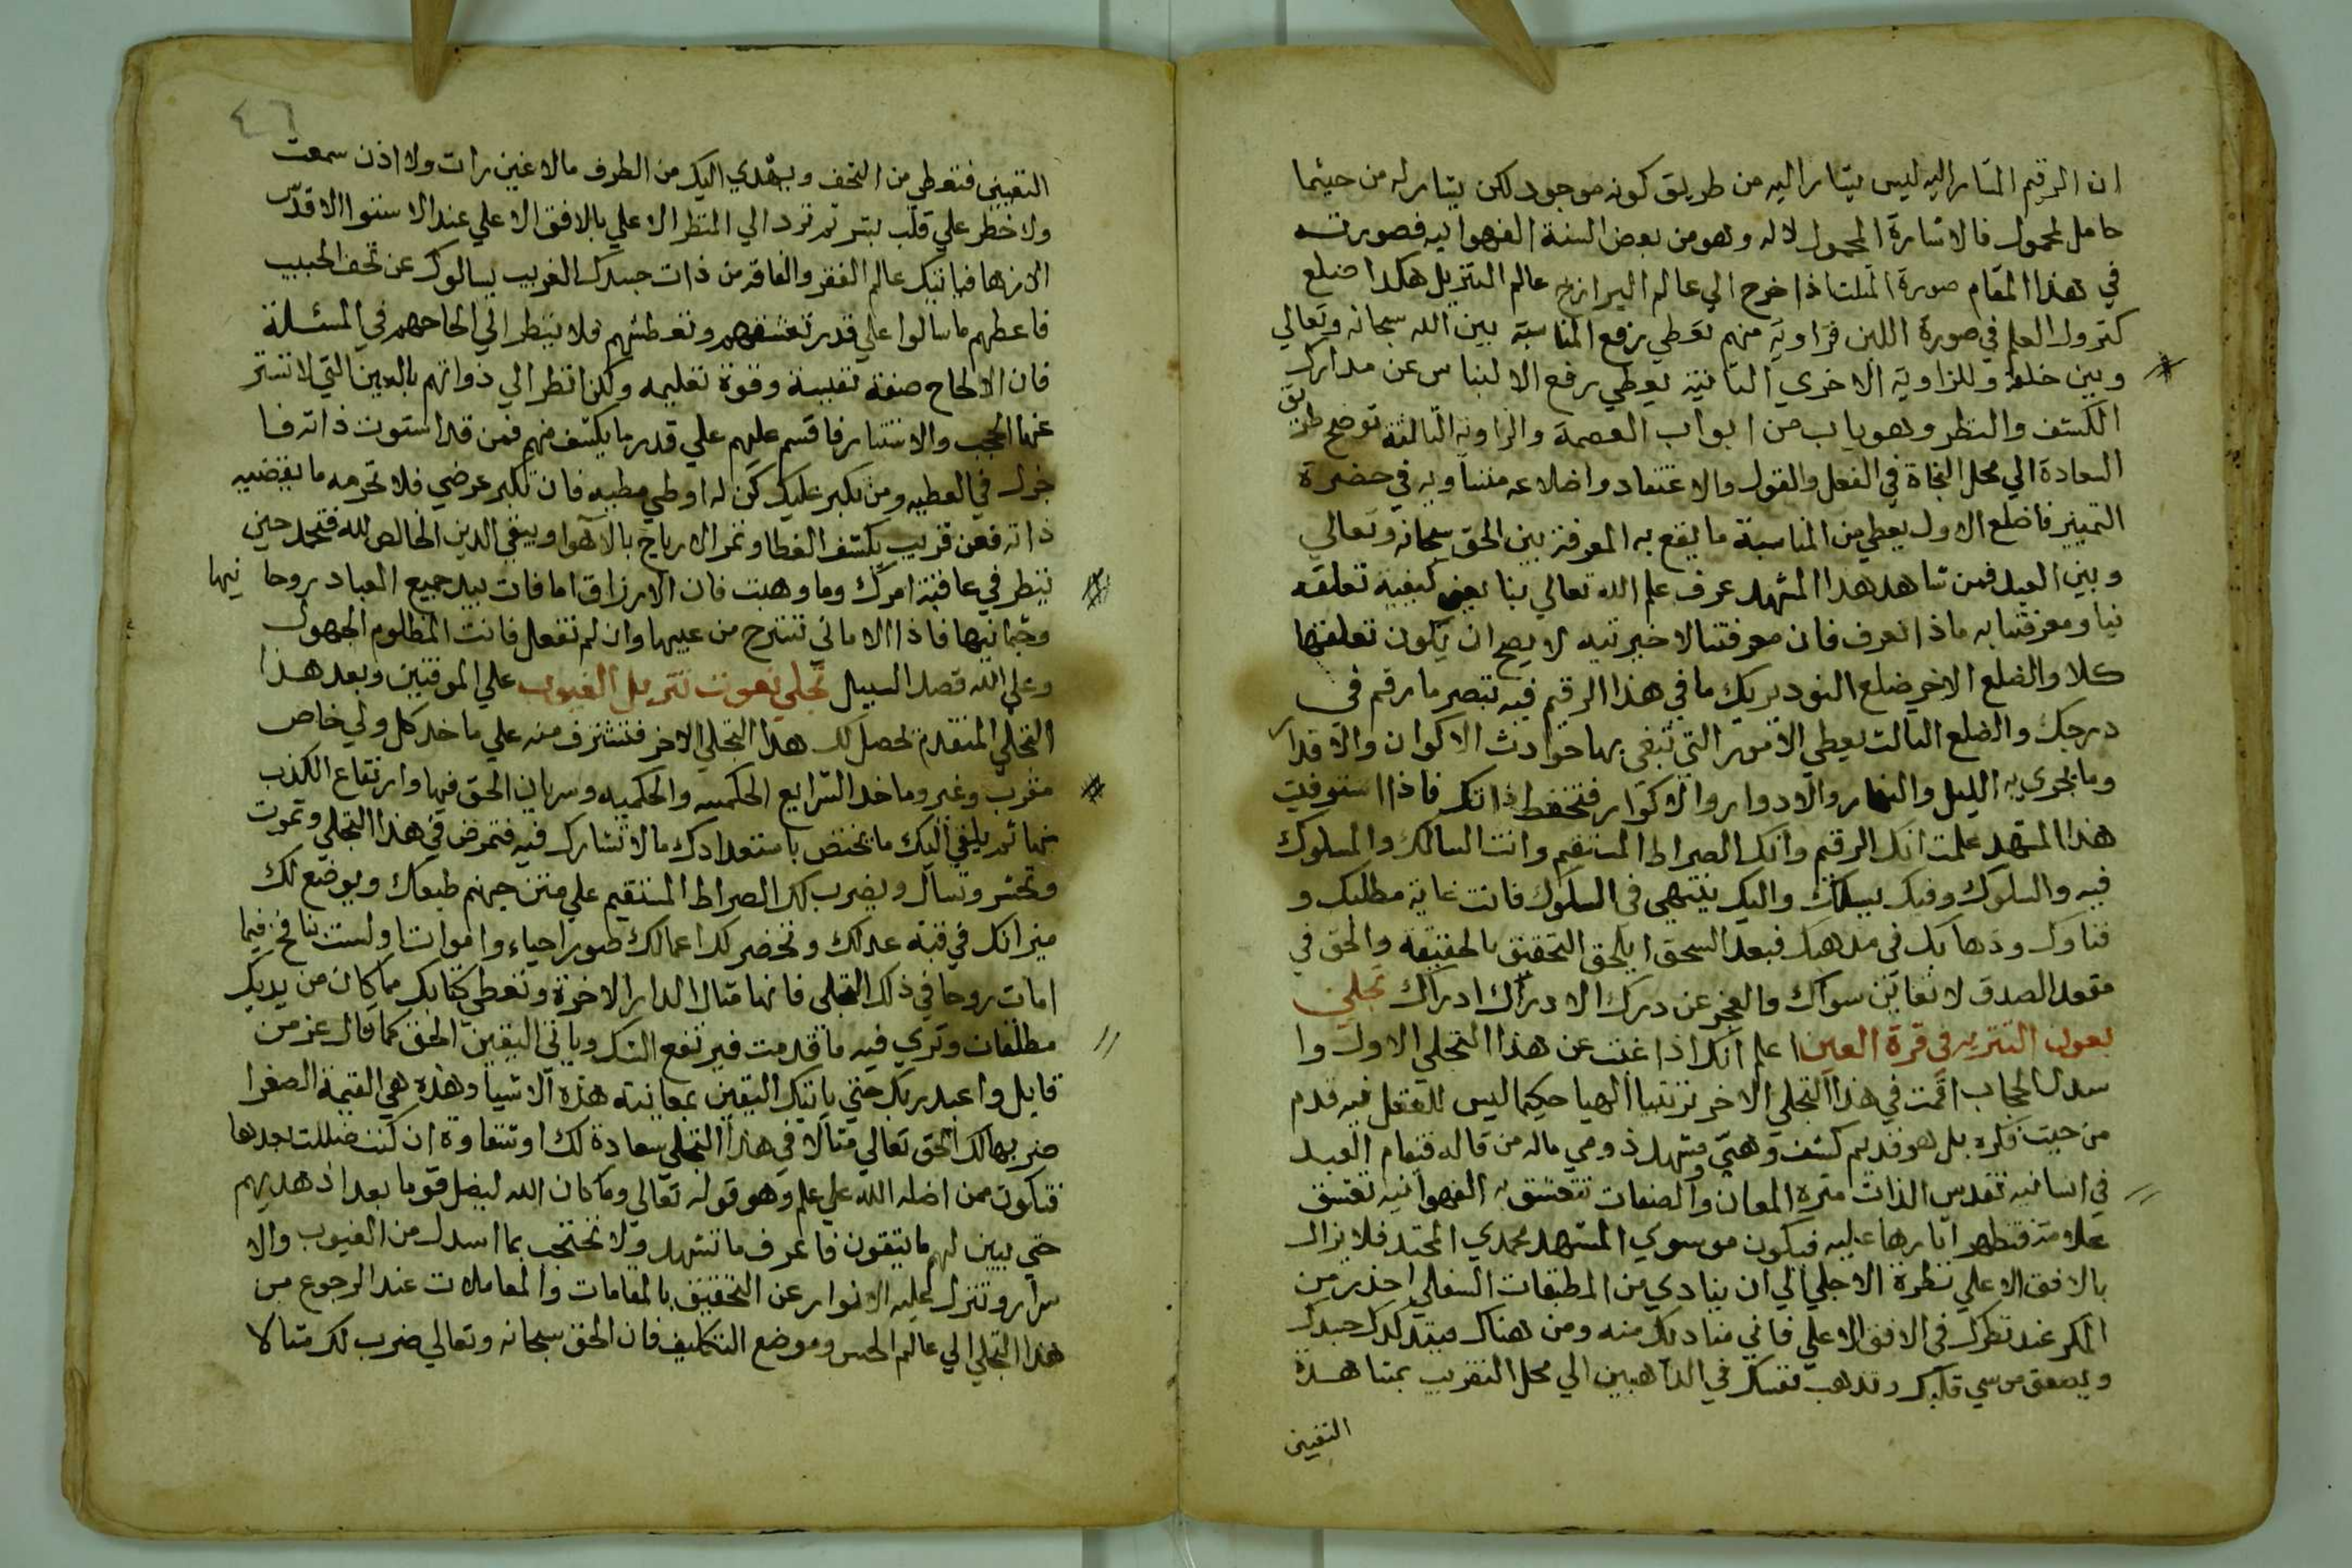 ان الرقيم المشار اليه ليس يشار اليه من طريق كونه موجود لكن يشار له من حيثما
حامل لمحمول فالاشارة المحمول لا له وهو من بعض السنة الفهوانيه فصورته
في هذا المقام صورة المثلث اذا خرج الي عالم البرازخ عالم التنزيل هكذا ضلع
كنزول العلم في صورة اللبن فزاوية منهم تعطي رفع المناسبة بين الله سبحانه وتعالي
وبين خلقه وللزاوية الاخري الثانية يعطي رفع الالتباس عن مدارك
الكشف والنظر وهو باب من ابواب العصمة والزاوية الثالثة توضح طريق
السعادة الي محل النجاة في الفعل والقول والاعتقاد واضلاعه متساويه في حضرة
التمييز فاضلع الاول يعطي من المناسبة ما يقع به المعرفة بين الحق سبحانه وتعالي
وبين العبد فمن شاهد هذا المشهد عرف علم الله تعالي بنا يعني كيفية تعلقه
بنا ومعرفتنا به ماذا تعرف فان معرفتنا لاخيرتيه لا يصح ان يكون تعلقها
كلا والضلع الاخر ضلع النود يريك ما في هذا الرقيم فيه تبصر ما رقم في
درجك والضلع الثالث يعطي الامور التي تبقي بها حوادث الاكوان والاقدار
وما يجري به الليل والنهار والادوار والاكوار فتحفظ ذاتك فاذا استوفيت
هذا المشهد علمت انك الرقيم وانك الصراط المستقيم وانت السالك والمسلوك
فيه والسلوك وفيك يسلك واليك ينتهي في السلوك فانت غاية مطلبك و
فناوك وذهابك في مذهبك فبعد السحق يلحق التحقيق بالحقيقة والحق في
مقعد الصدق لا تعاين سواك والعجز عن درك الادراك ادراك تجلي
نعوت التنزيه في قرة العين اعلم انك اذا غبت عن هذا التجلي الاول وا
سدل الحجاب اقمت في هذا التجلي الاخر ترتيبا الهيا حكيما ليس للعقل فيه قدم
من حيث فكره بل هو قديم كشف وهبي ومشهد ذوقي ماله من قاله فتقام العبد
في انسانيه تقدس الذات منزه المعان والصفات تتعشق به الفهوانيه تعشق
علامة فتظهر اثارها عليه فيكون موسوي المشهد محمدي المحتد فلا تزال
بالافق الاعلي نظرة الاجلي الي ان ينادي من الطبقات السفلي احذر من
المكر عند نظرك في الافق الاعلي فاني مناديك منه ومن هناك فيتدكدك جبدك
ويصعق موسي قلبك وتذهب نفسك في الذاهبين الي محل التقريب بمشاهدة
التعيين
٤٦
التعيين فتعطي من التحف ويهدي اليك من الطرف مالا عين رات ولا اذن سمعت
ولا خطر علي قلب بشر ثم ترد الي المنظر الاعلي بالافق الاعلي عند الاستوا الاقدس
الازها فياتيك عالم الفقر والفاقة من ذات جسدك الغريب يسالوك عن تحف الحبيب
فاعطهم ما سالوا علي قدر تعشقهم وتعطشهم ولا تنظر الي الحاحهم في المسئلة
فان الالحاح صفة نفسية وقوة تعليمه ولكن انظر الي ذواتهم بالعين التي لا تستتر
عنها الحجب والاستار فاقسم عليهم علي قدر ما يكشف منهم فمن قد استوت ذاته فا
جزل في العطيه ومن تكبر عليك كن له اوطي مطيه فان تكبر عرضي فلا تحرمه ما يقتضيه
ذاته فعن قريب يكشف الغطا وتمر الارياح بالاهوا ويبقي الدين الخالص لله فتحمد حين
تنظر في عاقبة امرك وما وهبت فان الارزاق امافات بيد جميع العباد روحا نيها
وجثمانيها فاذا الاماني تستريح من عيبها وان لم تفعل فانت الظلوم الجهول
وعلي الله قصد السبيل تجلي نعوت تنزيل الغيوب علي الموقنين وبعد هذا
التجلي المتقدم لحصل لك هذا التجلي الاخر فتشرف منه علي ماخذ كل ولي خاص
مقرب وغير وماخذ الشرايع الحكميه والحكميه وسريان الحق فيها وارتفاع الكذب
عنها ثم يلقي اليك ما يختص باستعدادك مالا تشارك فيه فتمرض في هذا التجلي وتموت
وتحشر وتسال ويضرب لك الصراط المستقيم علي متن جهنم طبعك ويوضع لك
ميزانك في قبة عدلك وتحضر لك اعمالك صورا احياء وامواتا ولست بنافخ فيما
امات روحا في ذلك التجلي فانها مثال الدار الاخرة وتعطي كتابك مما كان من يديك
مطلقات وتري فيه ما قدمت فيرتفع الشك وياتي اليقين الحق كما قال عز من
قايل واعبد ربك حتي ياتيك اليقين بمعاينة هذه الاشيا وهذه هي القيمة الصغرا
ضربها لك الحق تعالي مثالا في هذا التجلي سعادة لك او شقاوة ان كنت ضللت بعدها
فتكون ممن اضله الله علي علم وهو قوله تعالي وما كان الله ليضل قوما بعد اذ هديهم
حتي يبين لهم ما يتقون فاعرف ما تشهد ولا تحتجب بما اسدل من الغيوب والا
سرار وتنزل لحليه الانوار عن التحقيق بالمقامات والمعاملات عند الرجوع من
هذا التجلي الي عالم الحس وموضع التكليف فان الحق سبحانه وتعالي ضرب لك مثالا